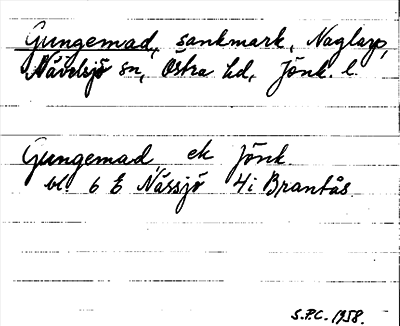 Gungemad, sankmark, Naglarp,
Nävelsjö sn, Östra hd, Jönk. l.
Gungemad ek Jönk
bl 6 E Nässjö 4i Brantås
S.P.C. 1958.